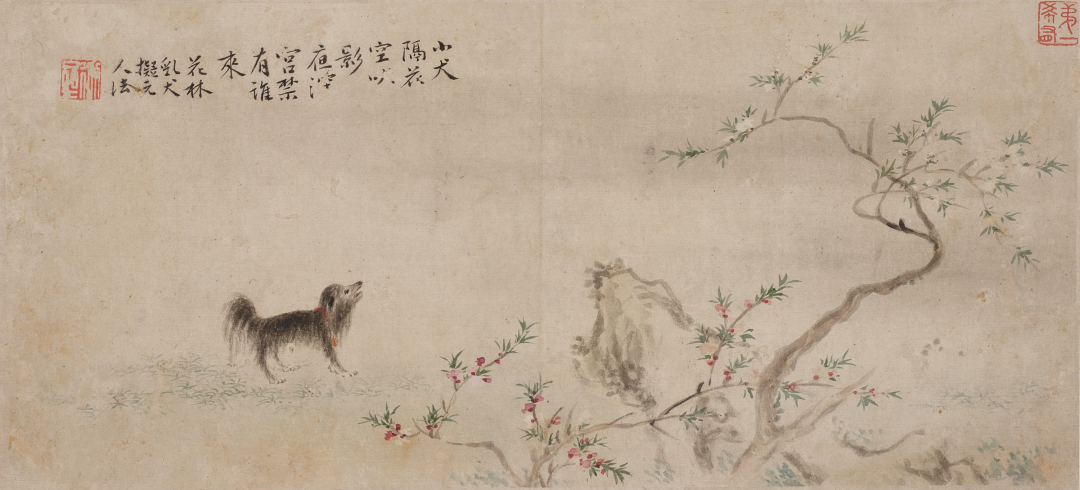 小犬
隔花
空吠
影
夜深
宮禁
有誰
來
花林
乳犬
擬元
人法